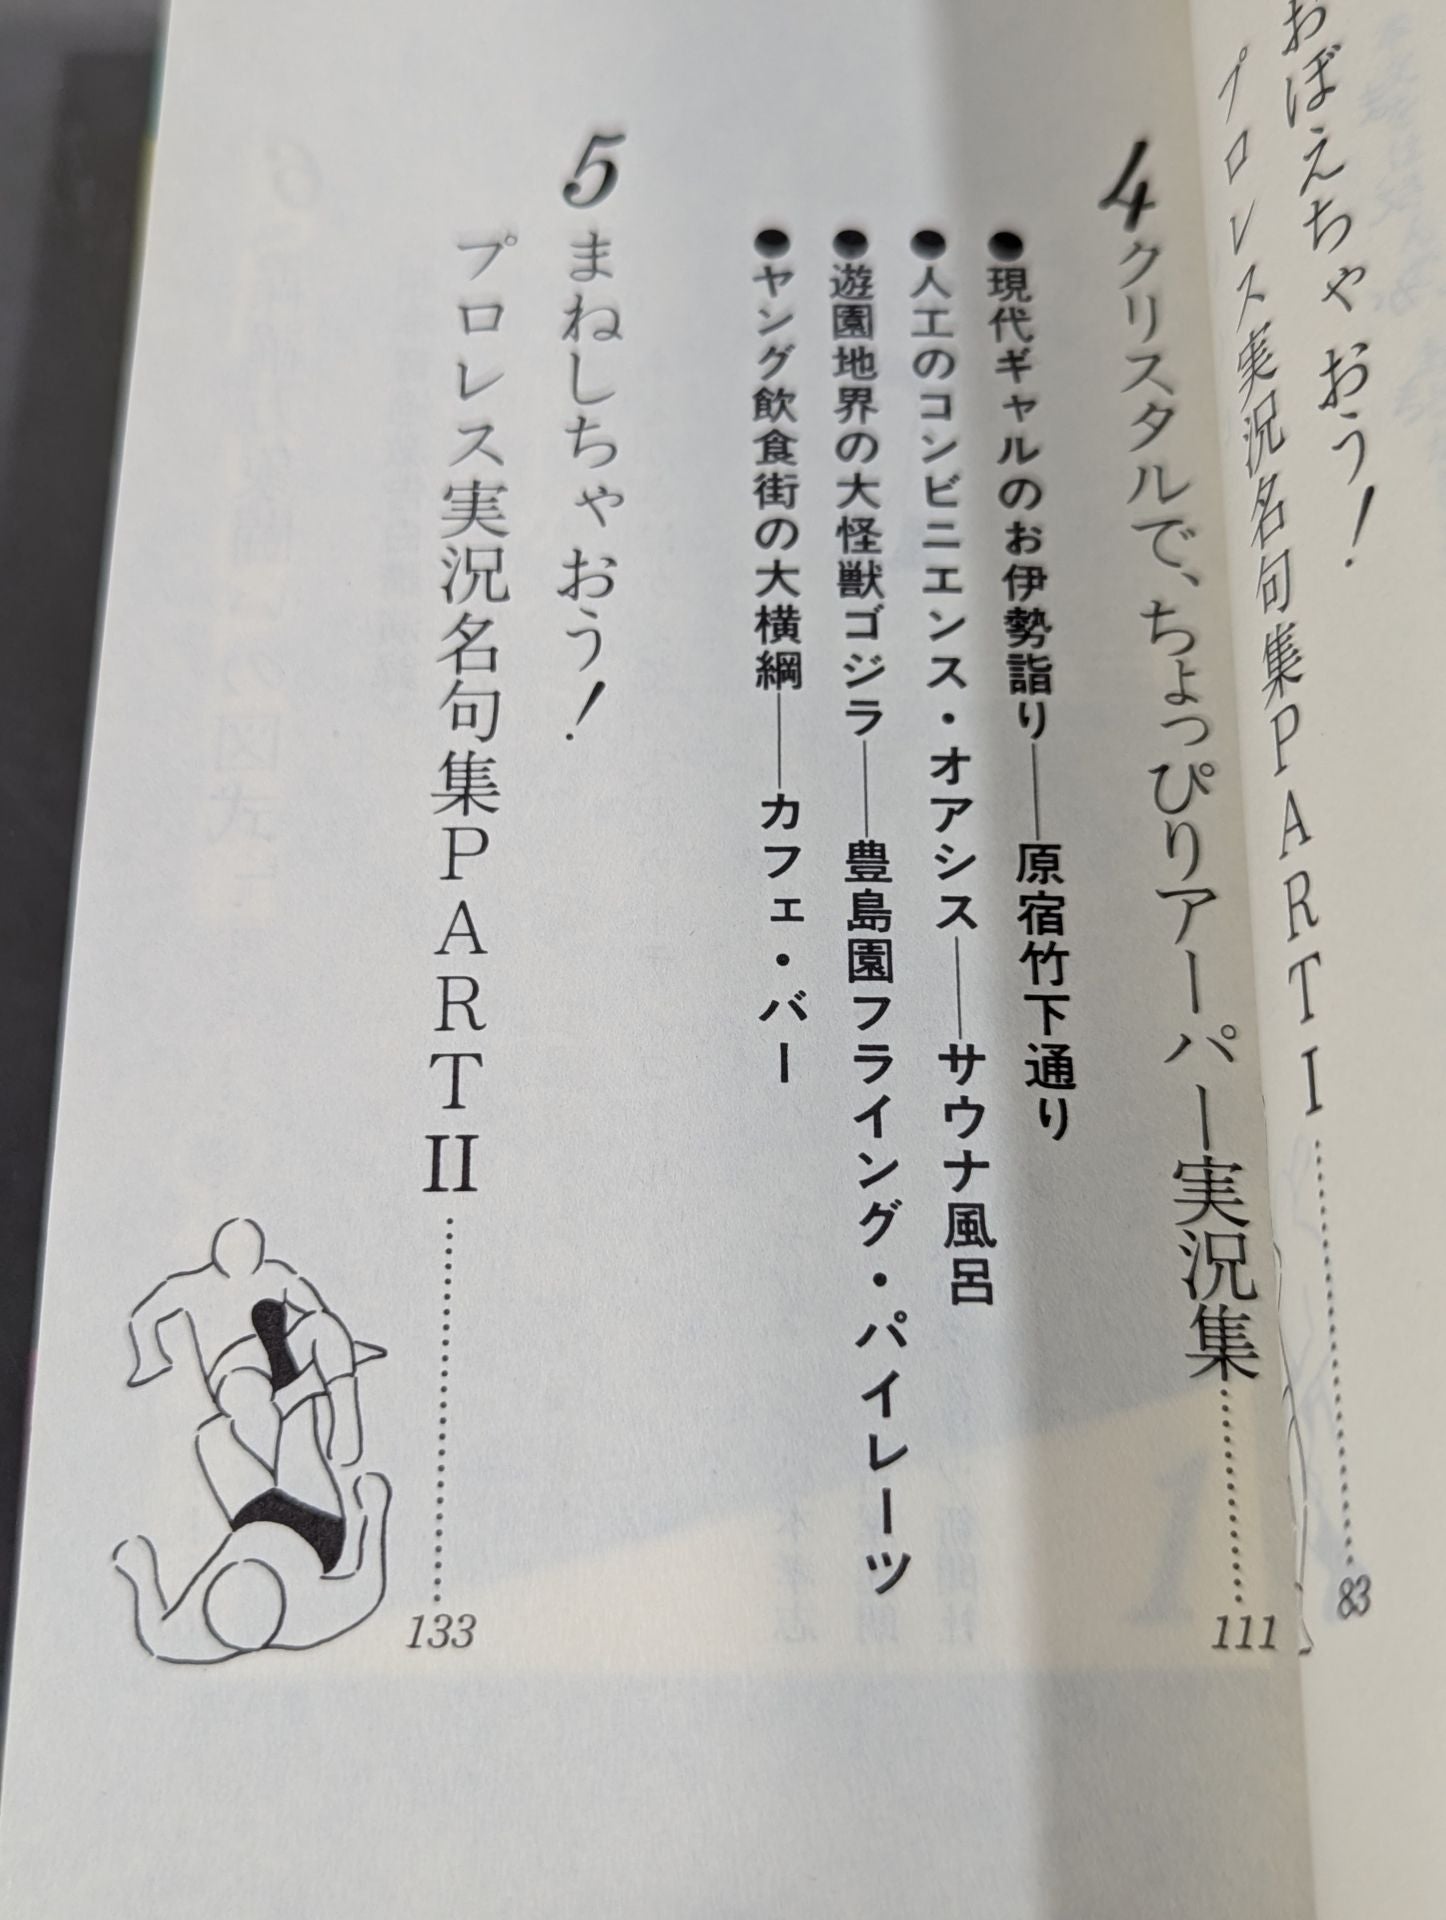 おぼえちゃおう!
プロレス実況名句集PART I……83
4 クリスタルで、ちょっぴりアーパー実況集……111
●現代ギャルのお伊勢詣り――原宿竹下通り
●人工のコンビニエンス・オアシス――サウナ風呂
●遊園地界の大怪獣ゴジラ――豊島園フライング・パイレーツ
●ヤング飲食街の大横綱――カフェ・バー
5 まねしちゃおう!
プロレス実況名句集PART II……133